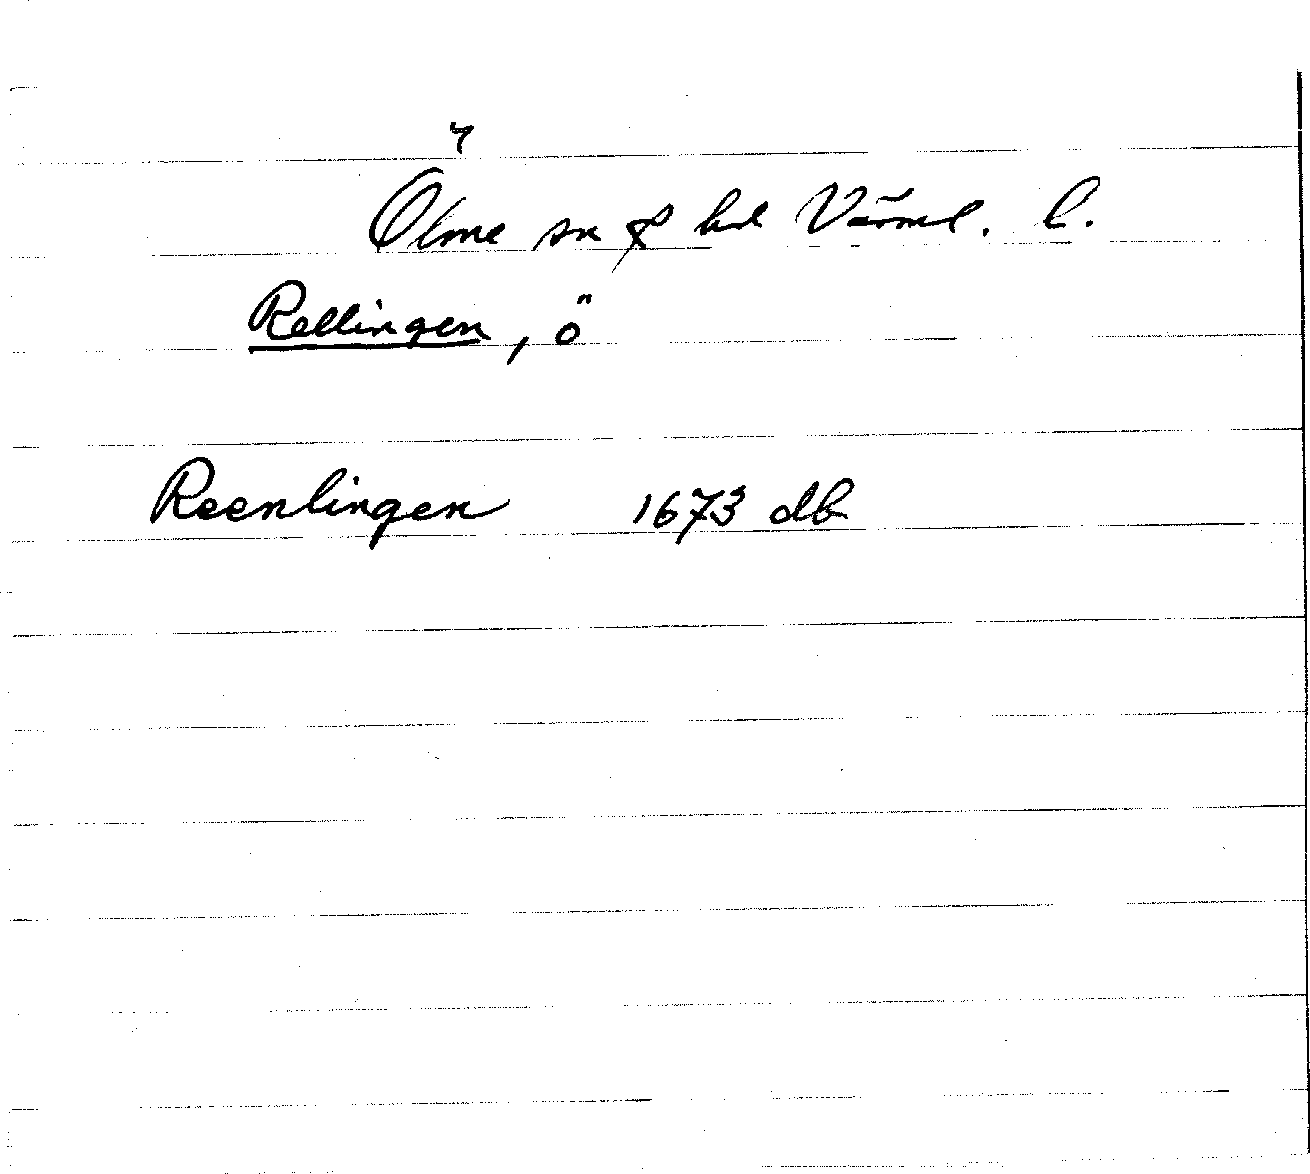 Ölme sn & hd Värml. l.
Rellingen, ö
Reenlingen 1673 db